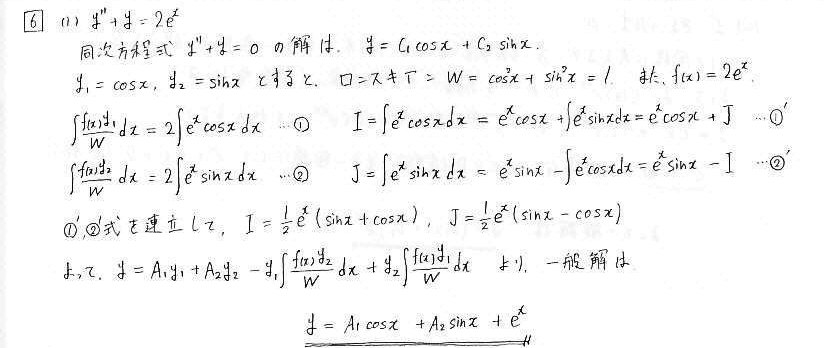 6 (1) y″ + y = 2eˣ
同次方程式 y″ + y = 0 の解は、 y = C₁ cos x + C₂ sin x.
y₁ = cos x, y₂ = sin x とすると、 ロンスキアン W = cos²x + sin²x = 1. また、f(x) = 2eˣ.
∫ f(x)y₁/W dx = 2∫eˣ cos x dx …① I = ∫eˣ cos x dx = eˣ cos x + ∫eˣ sin x dx = eˣ cos x + J …①′
∫ f(x)y₂/W dx = 2∫eˣ sin x dx …② J = ∫eˣ sin x dx = eˣ sin x − ∫eˣ cos x dx = eˣ sin x − I …②′
①′,②′式を連立して、 I = 1/2 eˣ (sin x + cos x), J = 1/2 eˣ (sin x − cos x)
よって、 y = A₁y₁ + A₂y₂ − y₁∫ f(x)y₂/W dx + y₂∫ f(x)y₁/W dx より、 一般解は
y = A₁ cos x + A₂ sin x + eˣ